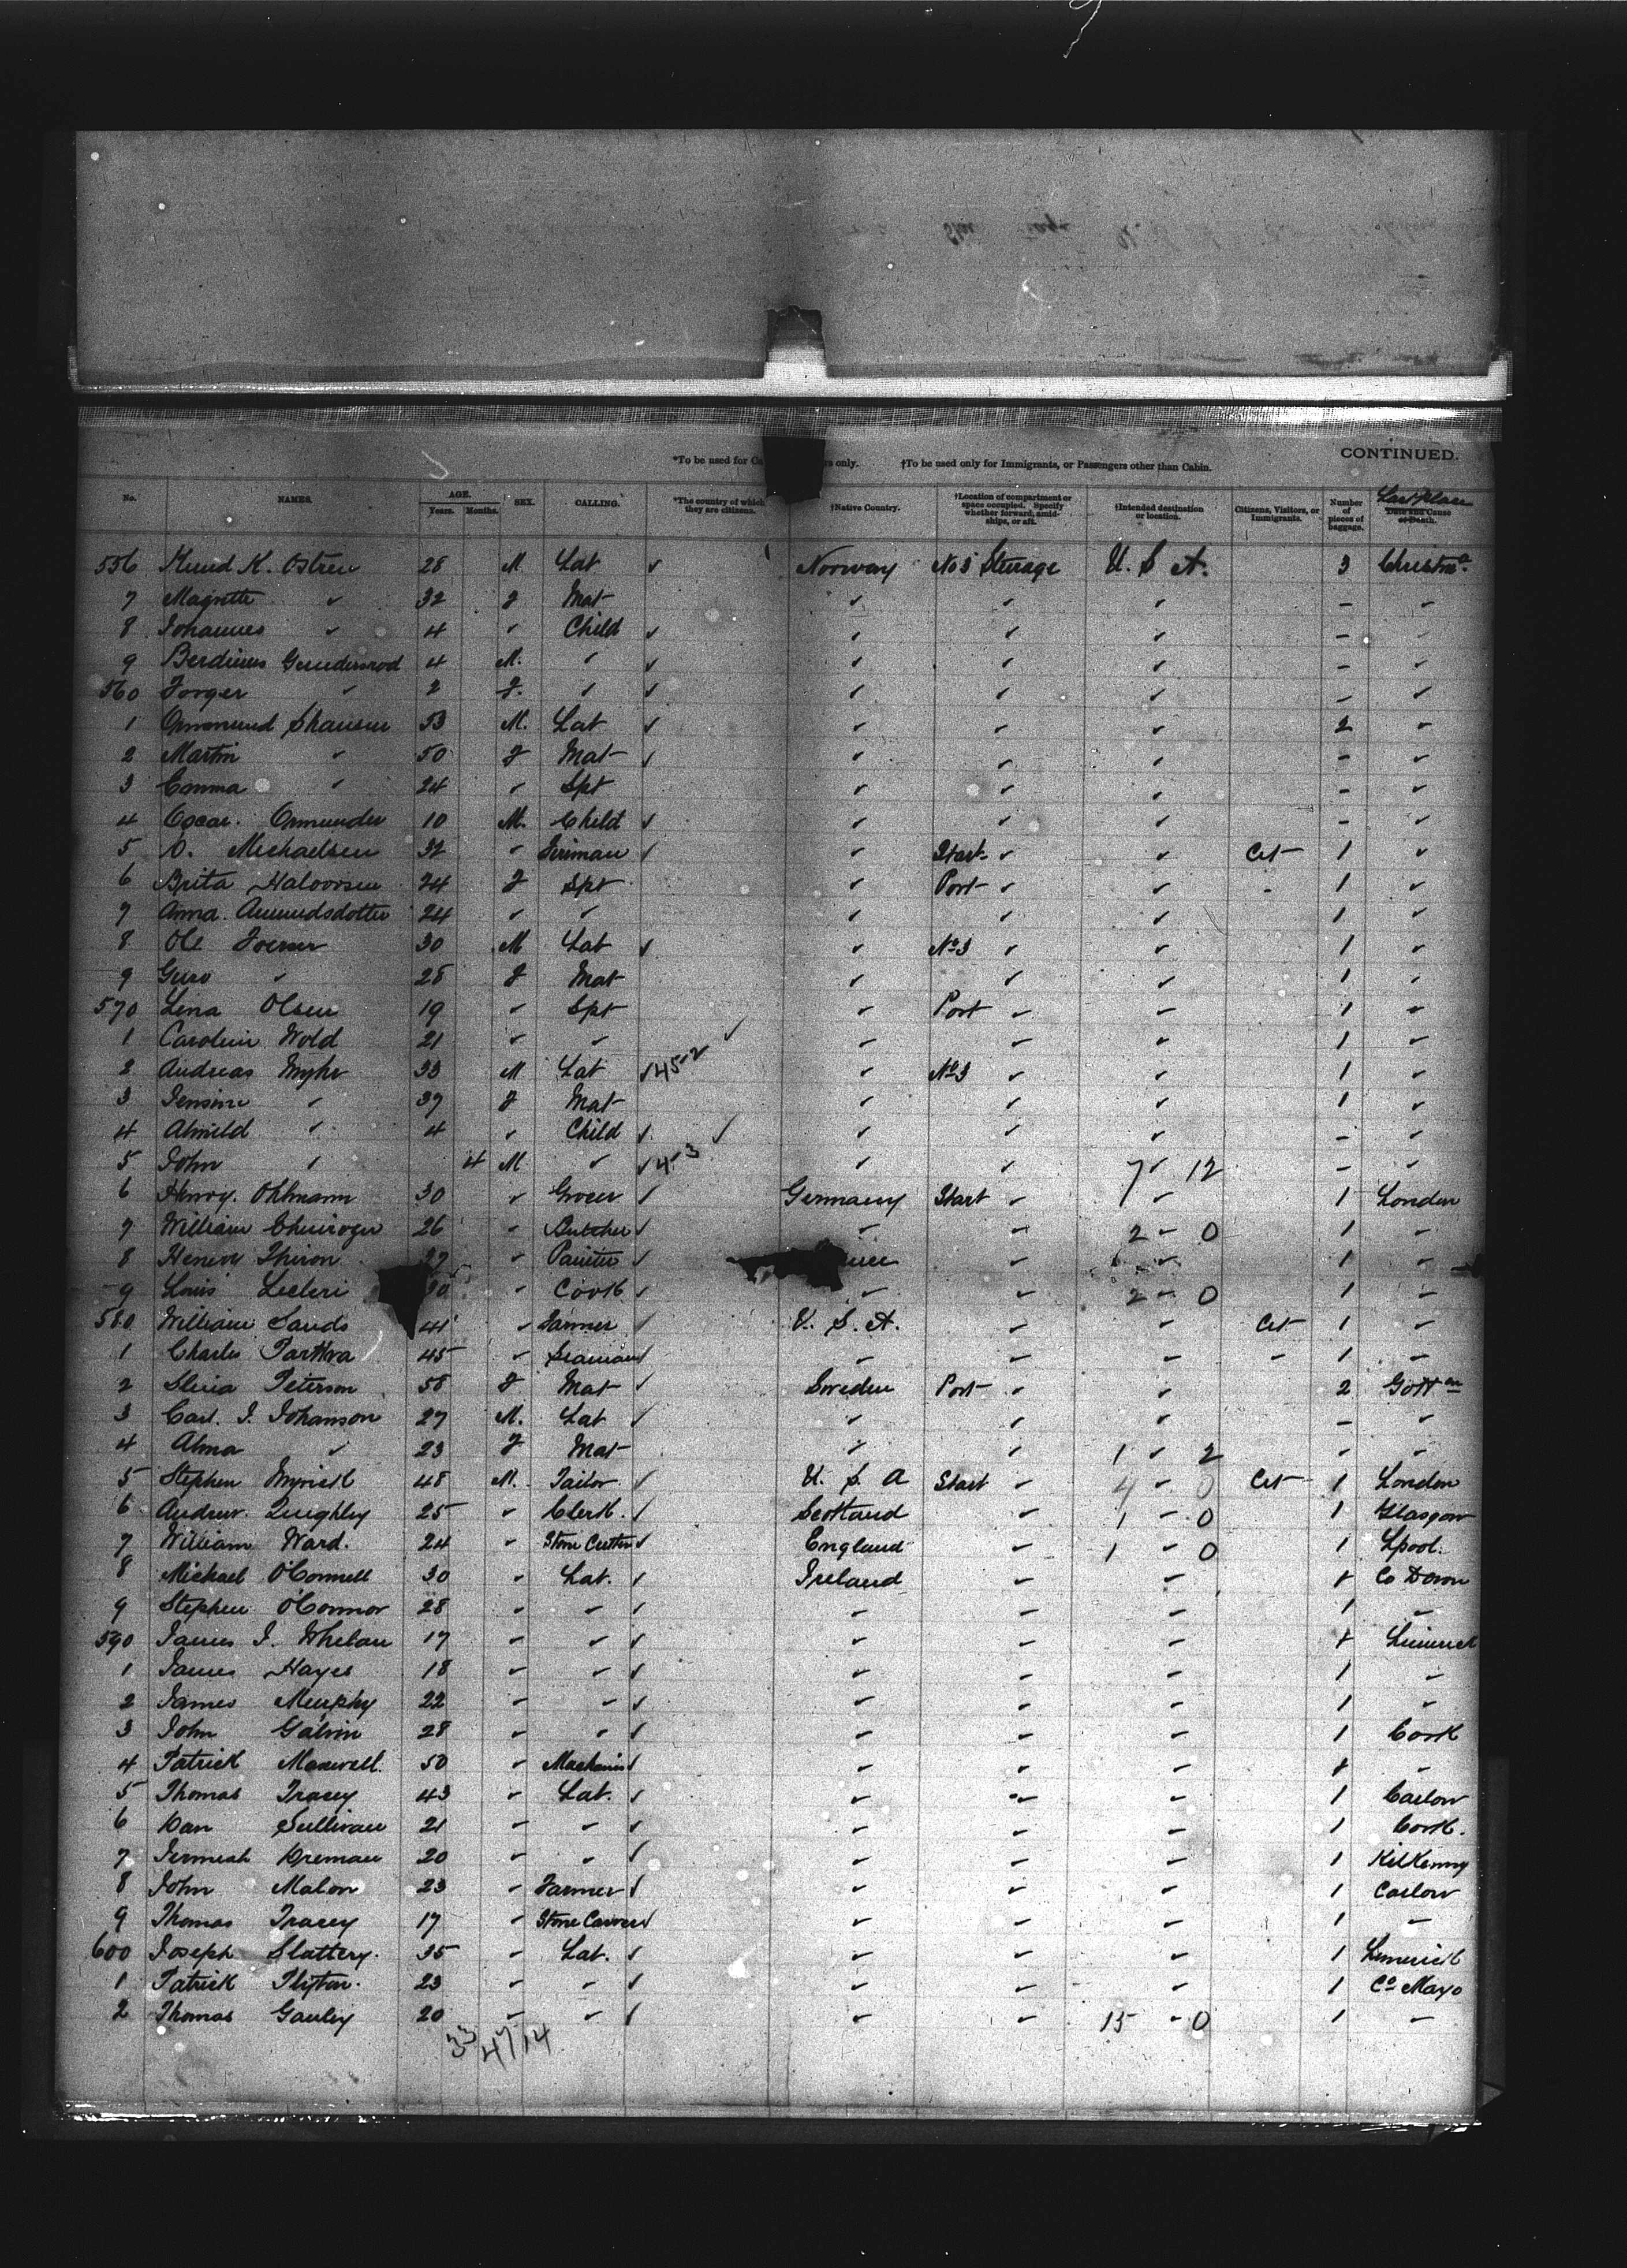 CONTINUED.
*To be used for Ca rs only. †To be used only for Immigrants, or Passengers other than Cabin.
No. NAMES. AGE. Years. Months. SEX. CALLING. *The country of which they are citizens. †Native Country. †Location of compartment or space occupied. Specify whether forward, amid-ships, or aft. †Intended destination or location. Citizens, Visitors, or Immigrants. Number of pieces of baggage. Last Place Date and Cause of Death.
556 Knud K. Ostren 28 M Lab ✓ Norway No 3 Sterage U. S. A. 3
7 Magnette " 32 F Mat " " " - "
8 Johannes " 4 " Child ✓ " " " - "
9 4 M. " ✓ " " " - "
560 Torger " 2 F. " ✓ " " " - "
1 53 M. Lab ✓ " " " 2 "
2 Martin " 50 F Mat ✓ " " " - "
3 Emma " 24 " Spt " " " - "
4 Oscar. 10 M. Child ✓ " " " - "
5 Michaelsen 32 " Fireman ✓ " Start " " Cit 1 "
6 Brita Halvorsen 24 F Spt " Port " " - 1 "
7 Anna. Amundsdotter 24 " " " " " 1 "
8 Ole 30 M Lab ✓ " No 3 " " 1 "
9 Guro " 28 F Mat " " " 1 "
570 Lena Olsen 19 " Spt " Port " " 1 "
1 Carolin Wold 21 " " " " " 1 "
2 Andreas Myhr 33 M Lab ✓ " No 3 " " 1 "
3 Jensine " 37 F Mat " " " 1 "
4 " 4 " Child ✓ " " " - "
5 John " 4 M " ✓ " " 7 " 12 - "
6 Henry. Ohlmann 30 " Grocer ✓ Germany Start " " 1 London
7 William 26 " Butcher ✓ " " 2 - 0 1 "
8 " Painter ✓ " " 1 "
9 Louis " Cook ✓ " " 2 - 0 1 "
580 William Sands 41 " Farmer ✓ U. S. A. " " Cit 1 "
1 Charles 45 " Seaman ✓ " " " " 1 "
2 Peterson 58 F Mat ✓ Sweden Port " " 2 Gott en
3 Carl. J. Johanson 27 M. Lab ✓ " " " - "
4 Alma " 23 F Mat " " 1 " 2 - "
5 Stephen Myrick 48 M. Tailor ✓ U. S. A Start " 4 - 0 Cit 1 London
6 Andrew. Quighley 25 " Clerk. ✓ Scotland " 1 - 0 1 Glasgow
7 William Ward. 24 " Stone Cutter ✓ England " 1 - 0 1 Lpool.
8 Michael O'Connell 30 " Lab. ✓ Ireland " " 1 Co Down
9 Stephen O'Connor 28 " " ✓ " " " 1 "
590 James J. Whelan 17 " " ✓ " " " 1 Limerick
1 James Hayes 18 " " ✓ " " " 1 "
2 James Murphy 22 " " ✓ " " " 1 "
3 John Galvin 28 " " ✓ " " " 1 Cork
4 Patrick Maxwell. 50 " ✓ " " " 1 "
5 Thomas Tracey 43 " Lab. ✓ " " " 1 Carlow
6 Dan Sullivan 21 " " ✓ " " " 1 Cork.
7 Jermiah 20 " " ✓ " " " 1 Kilkenny
8 John Malon 23 " Farmer ✓ " " " 1 Carlow
9 Thomas Tracey 17 " Stone Carver ✓ " " " 1 "
600 Joseph Slattery. 35 " Lab. ✓ " " " 1 Limerick
1 Patrick 23 " " ✓ " " " 1 Co Mayo
2 Thomas 20 " " ✓ " " 15 - 0 1 "
33 47 14